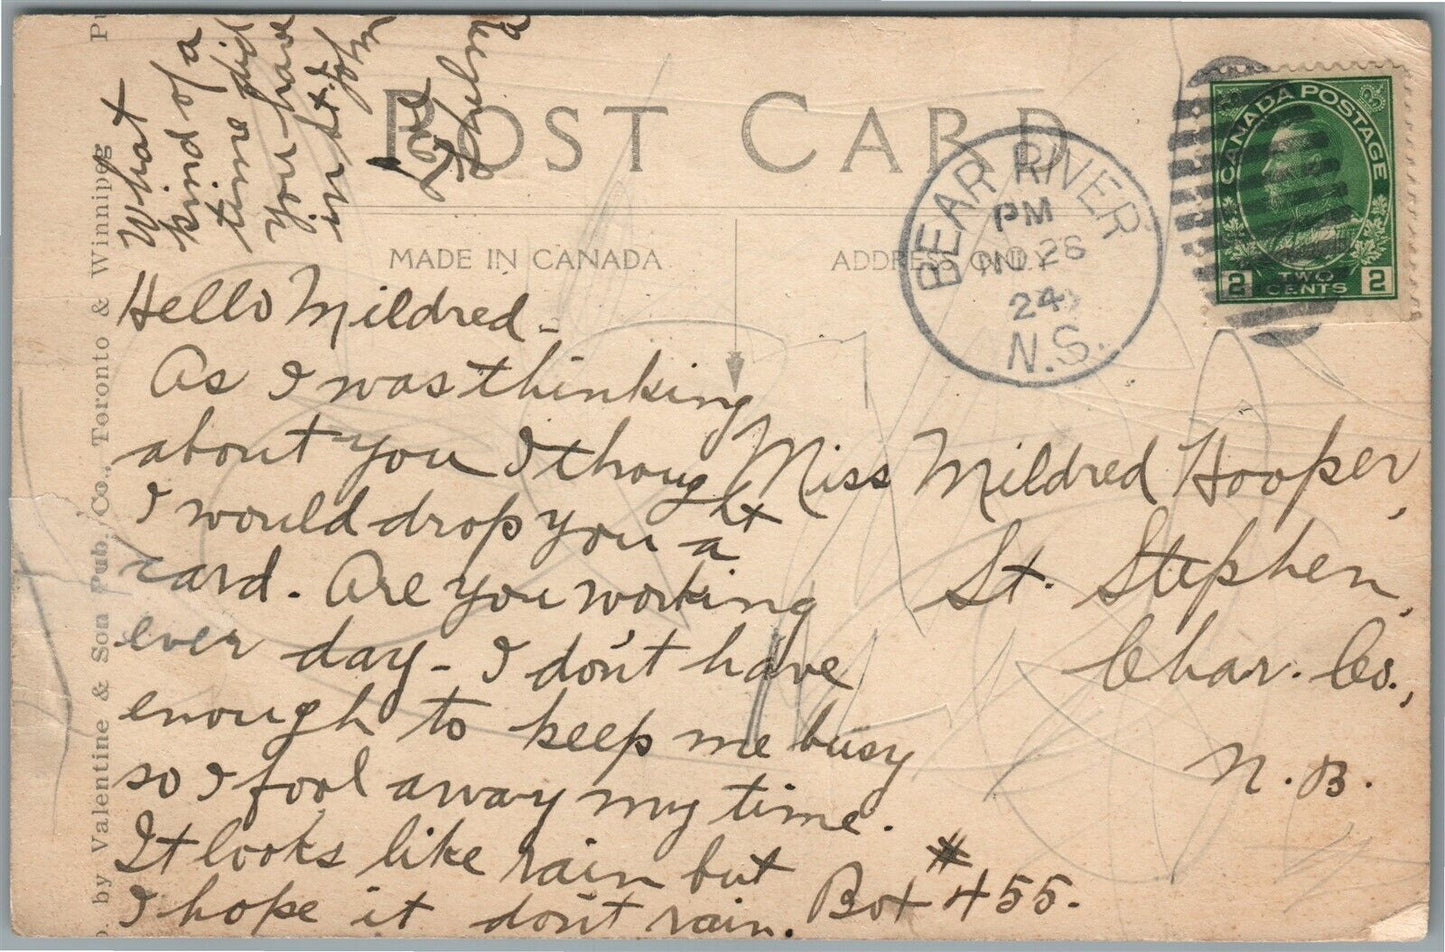 What
kind of a
time did
you have
in St.
John
Love
Thelma
POST CARD
MADE IN CANADA
ADDRESS ONLY
BEAR RIVER
PM
NO 28
24
N.S.
CANADA POSTAGE
2 TWO CENTS 2
Hello Mildred -
As I was thinking
about you I thought
I would drop you a
card. Are you working
ever day - I don't have
enough to keep me busy
so I fool away my time.
It looks like rain but
I hope it don't rain.
Miss Mildred Hooper,
St. Stephen,
Char. Co.,
N.B.
Box # 455.
. by Valentine & Son Pub. Co., Toronto & Winnipeg